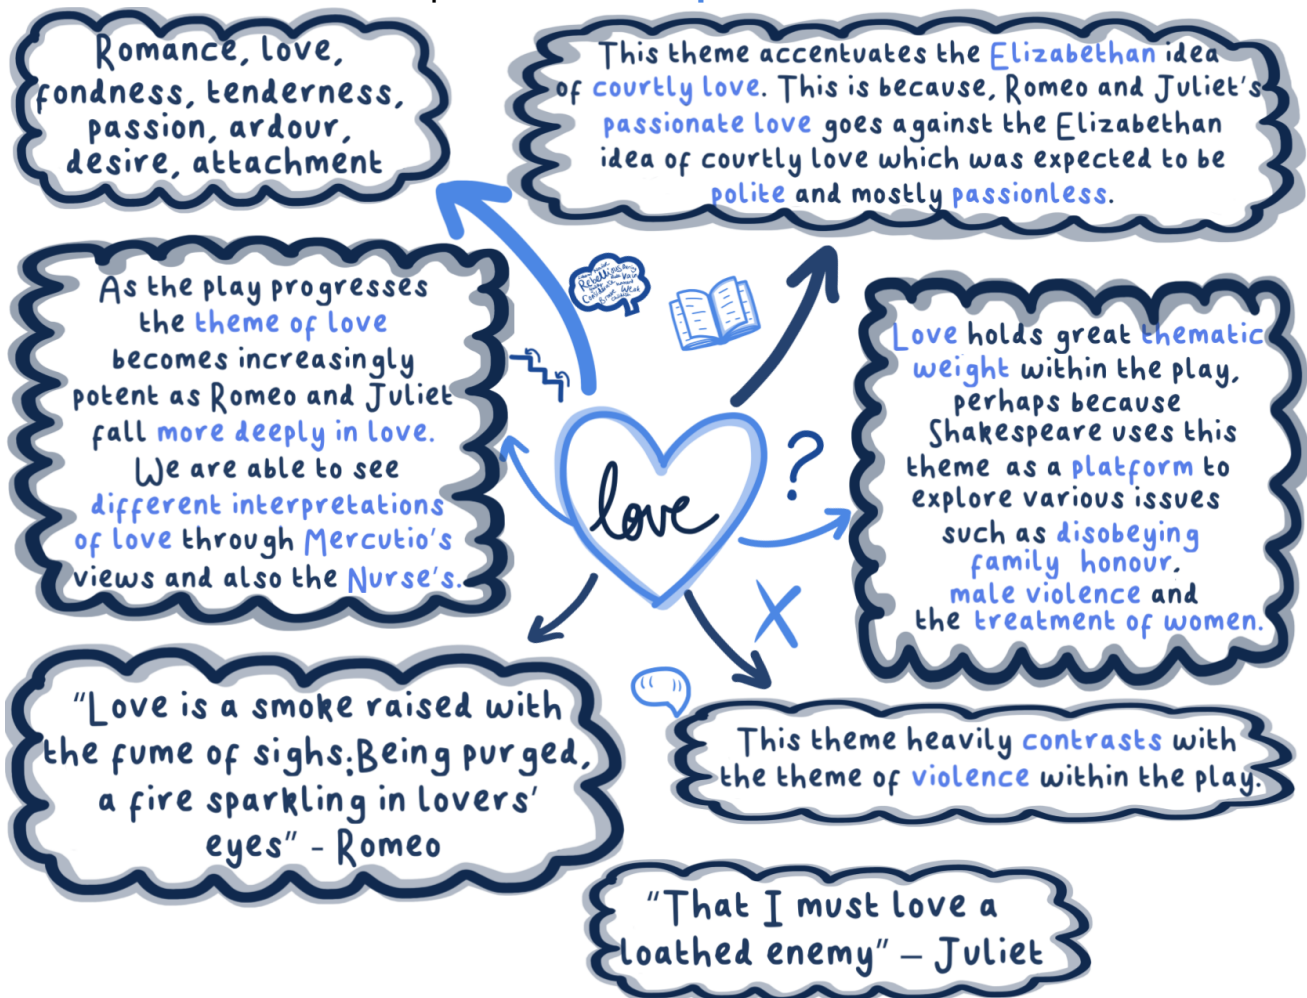 Romance, love,
fondness, tenderness,
passion, ardour,
desire, attachment
This theme accentuates the Elizabethan idea
of courtly love. This is because, Romeo and Juliet's
passionate love goes against the Elizabethan
idea of courtly love which was expected to be
polite and mostly passionless.
As the play progresses
the theme of love
becomes increasingly
potent as Romeo and Juliet
fall more deeply in love.
We are able to see
different interpretations
of love through Mercutio's
views and also the Nurse's.
Rebellious
love
?
Love holds great thematic
weight within the play,
perhaps because
Shakespeare uses this
theme as a platform to
explore various issues
such as disobeying
family honour,
male violence and
the treatment of women.
"Love is a smoke raised with
the fume of sighs;Being purged,
a fire sparkling in lovers'
eyes" - Romeo
This theme heavily contrasts with
the theme of violence within the play.
"That I must love a
loathed enemy" – Juliet